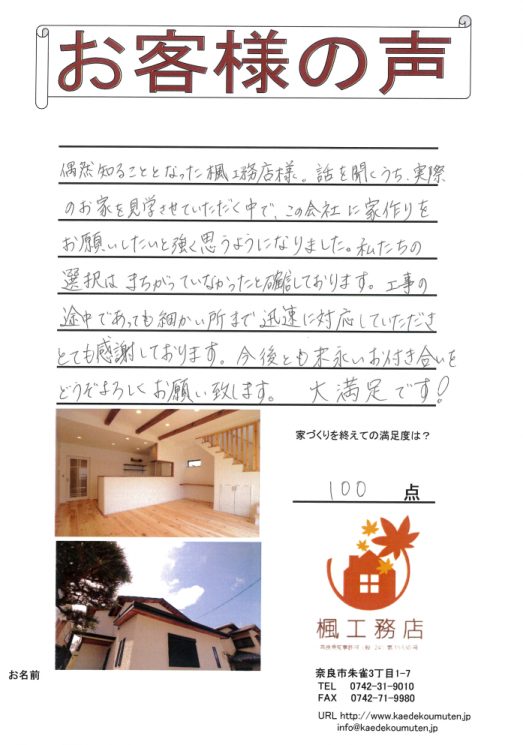 お客様の声
偶然知ることとなった楓工務店様。話を聞くうち、実際
のお家を見学させていただく中で、この会社に家作りを
お願いしたいと強く思うようになりました。私たちの
選択はまちがっていなかったと確信しております。工事の
途中であっても細かい所まで迅速に対応していただき
とても感謝しております。今後とも末永いお付き合いを
どうぞよろしくお願い致します。 大満足です!
家づくりを終えての満足度は?
100 点
楓工務店
お名前
奈良市朱雀3丁目1-7
TEL 0742-31-9010
FAX 0742-71-9980
URL http://www.kaedekoumuten.jp
info@kaedekoumuten.jp